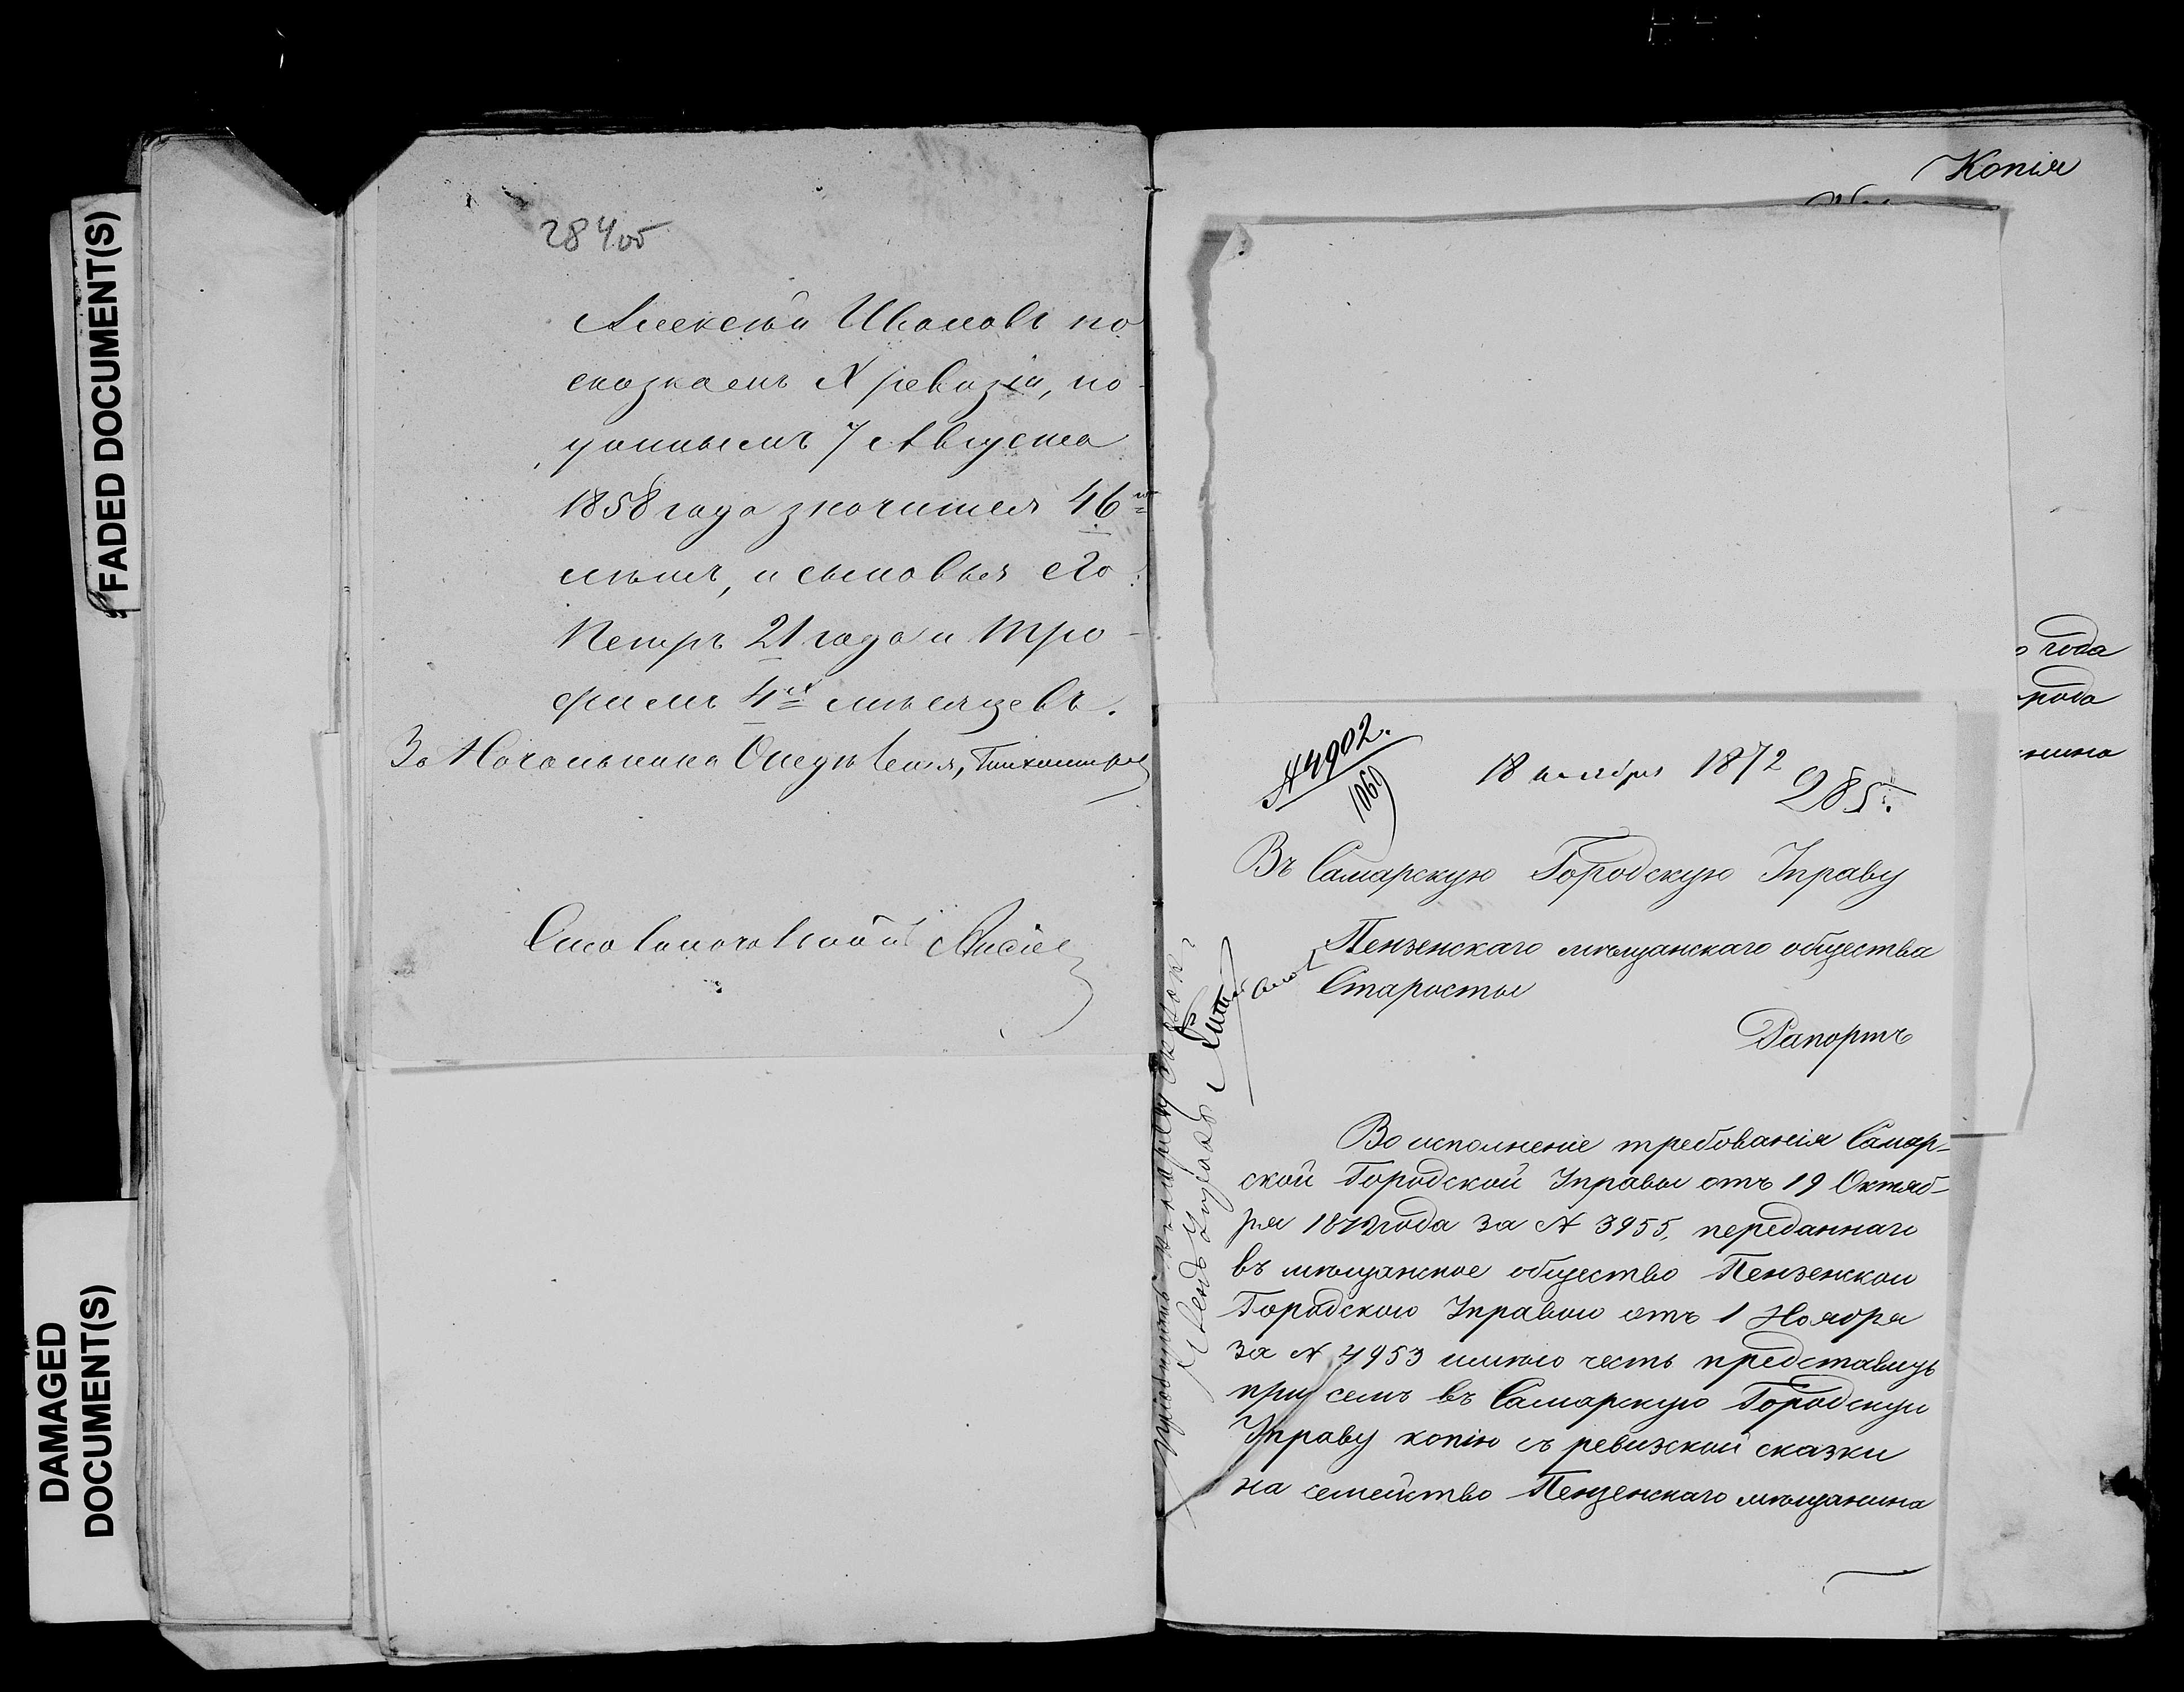 FAADED DOCUMENT(S)
DAMAGED
DOCUMENT(S)
284об
Алексѣй Ивановъ по
сказкамъ X ревизіи, по-
даннымъ 7 Августа
1858 года значится 46ти
лѣтъ, и сыновья его:
Петръ 21 года и Тро-
фимъ 4хъ мѣсяцевъ.
За Начальника Отдѣленія,
Столоначальникъ
Копія
№ 4902.
1069
18 ноября 1872
285.
Въ Самарскую Городскую Управу
Пензенскаго мѣщанскаго общества
Старосты
Рапортъ
Во исполненіе требованія Самар-
ской Городской Управы отъ 19 Октяб-
ря 1872 года за № 3955, переданнаго
въ мѣщанское общество Пензенскою
Городскою Управою отъ 1 Ноября
за № 4953 имѣю честь представить
при семъ въ Самарскую Городскую
Управу копію съ ревизской сказки
на семейство Пензенскаго мѣщанина
года